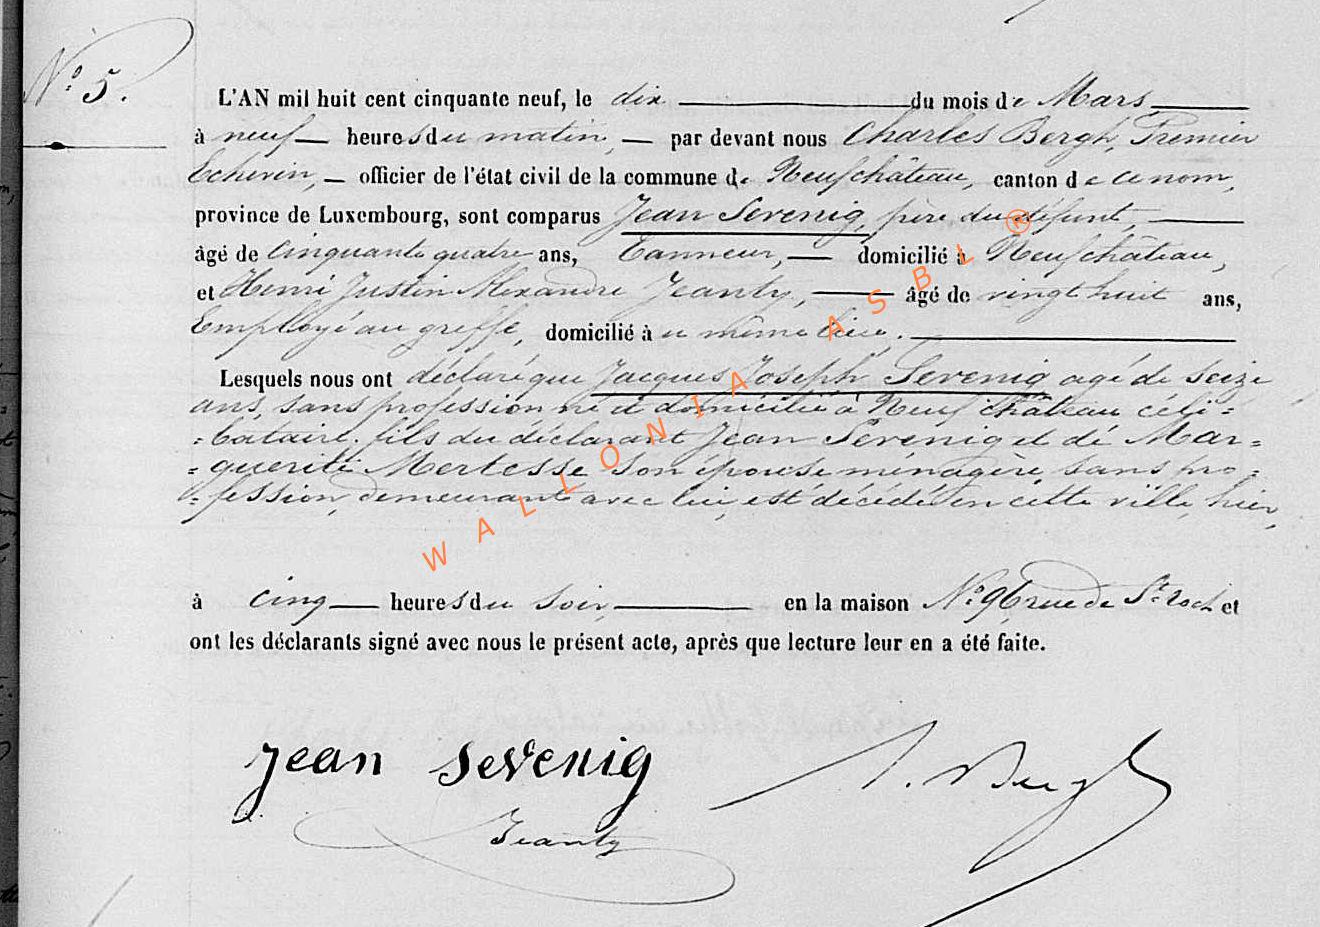 N° 5.
L'AN mil huit cent cinquante neuf, le dix du mois de Mars
à neuf heures du matin, par devant nous Charles Bergh, Premier
Echevin, officier de l'état civil de la commune de Neufchâteau, canton de ce nom,
province de Luxembourg, sont comparus Jean Sevenig, père du défunt,
âgé de cinquante quatre ans, Tanneur, domicilié à Neufchâteau,
et Henri Justin Alexandre Jeanty, âgé de vingt huit ans,
Employé au greffe, domicilié à u même lieu.
Lesquels nous ont déclaré que Jacques Joseph Sevenig agé de seize
ans, sans profession né et domicilié à Neufchâteau céli=
=bataire, fils du déclarant Jean Sevenig et de Mar=
=guerite Mertesse son épouse ménagère, sans pro=
=fession, demeurant avec lui, est décédé en cette ville hier,
à cinq heures du soir, en la maison N° 96 rue de St roch et
ont les déclarants signé avec nous le présent acte, après que lecture leur en a été faite.
Jean Sevenig
Jeanty
Bergh
WALLONIA ASBL ®